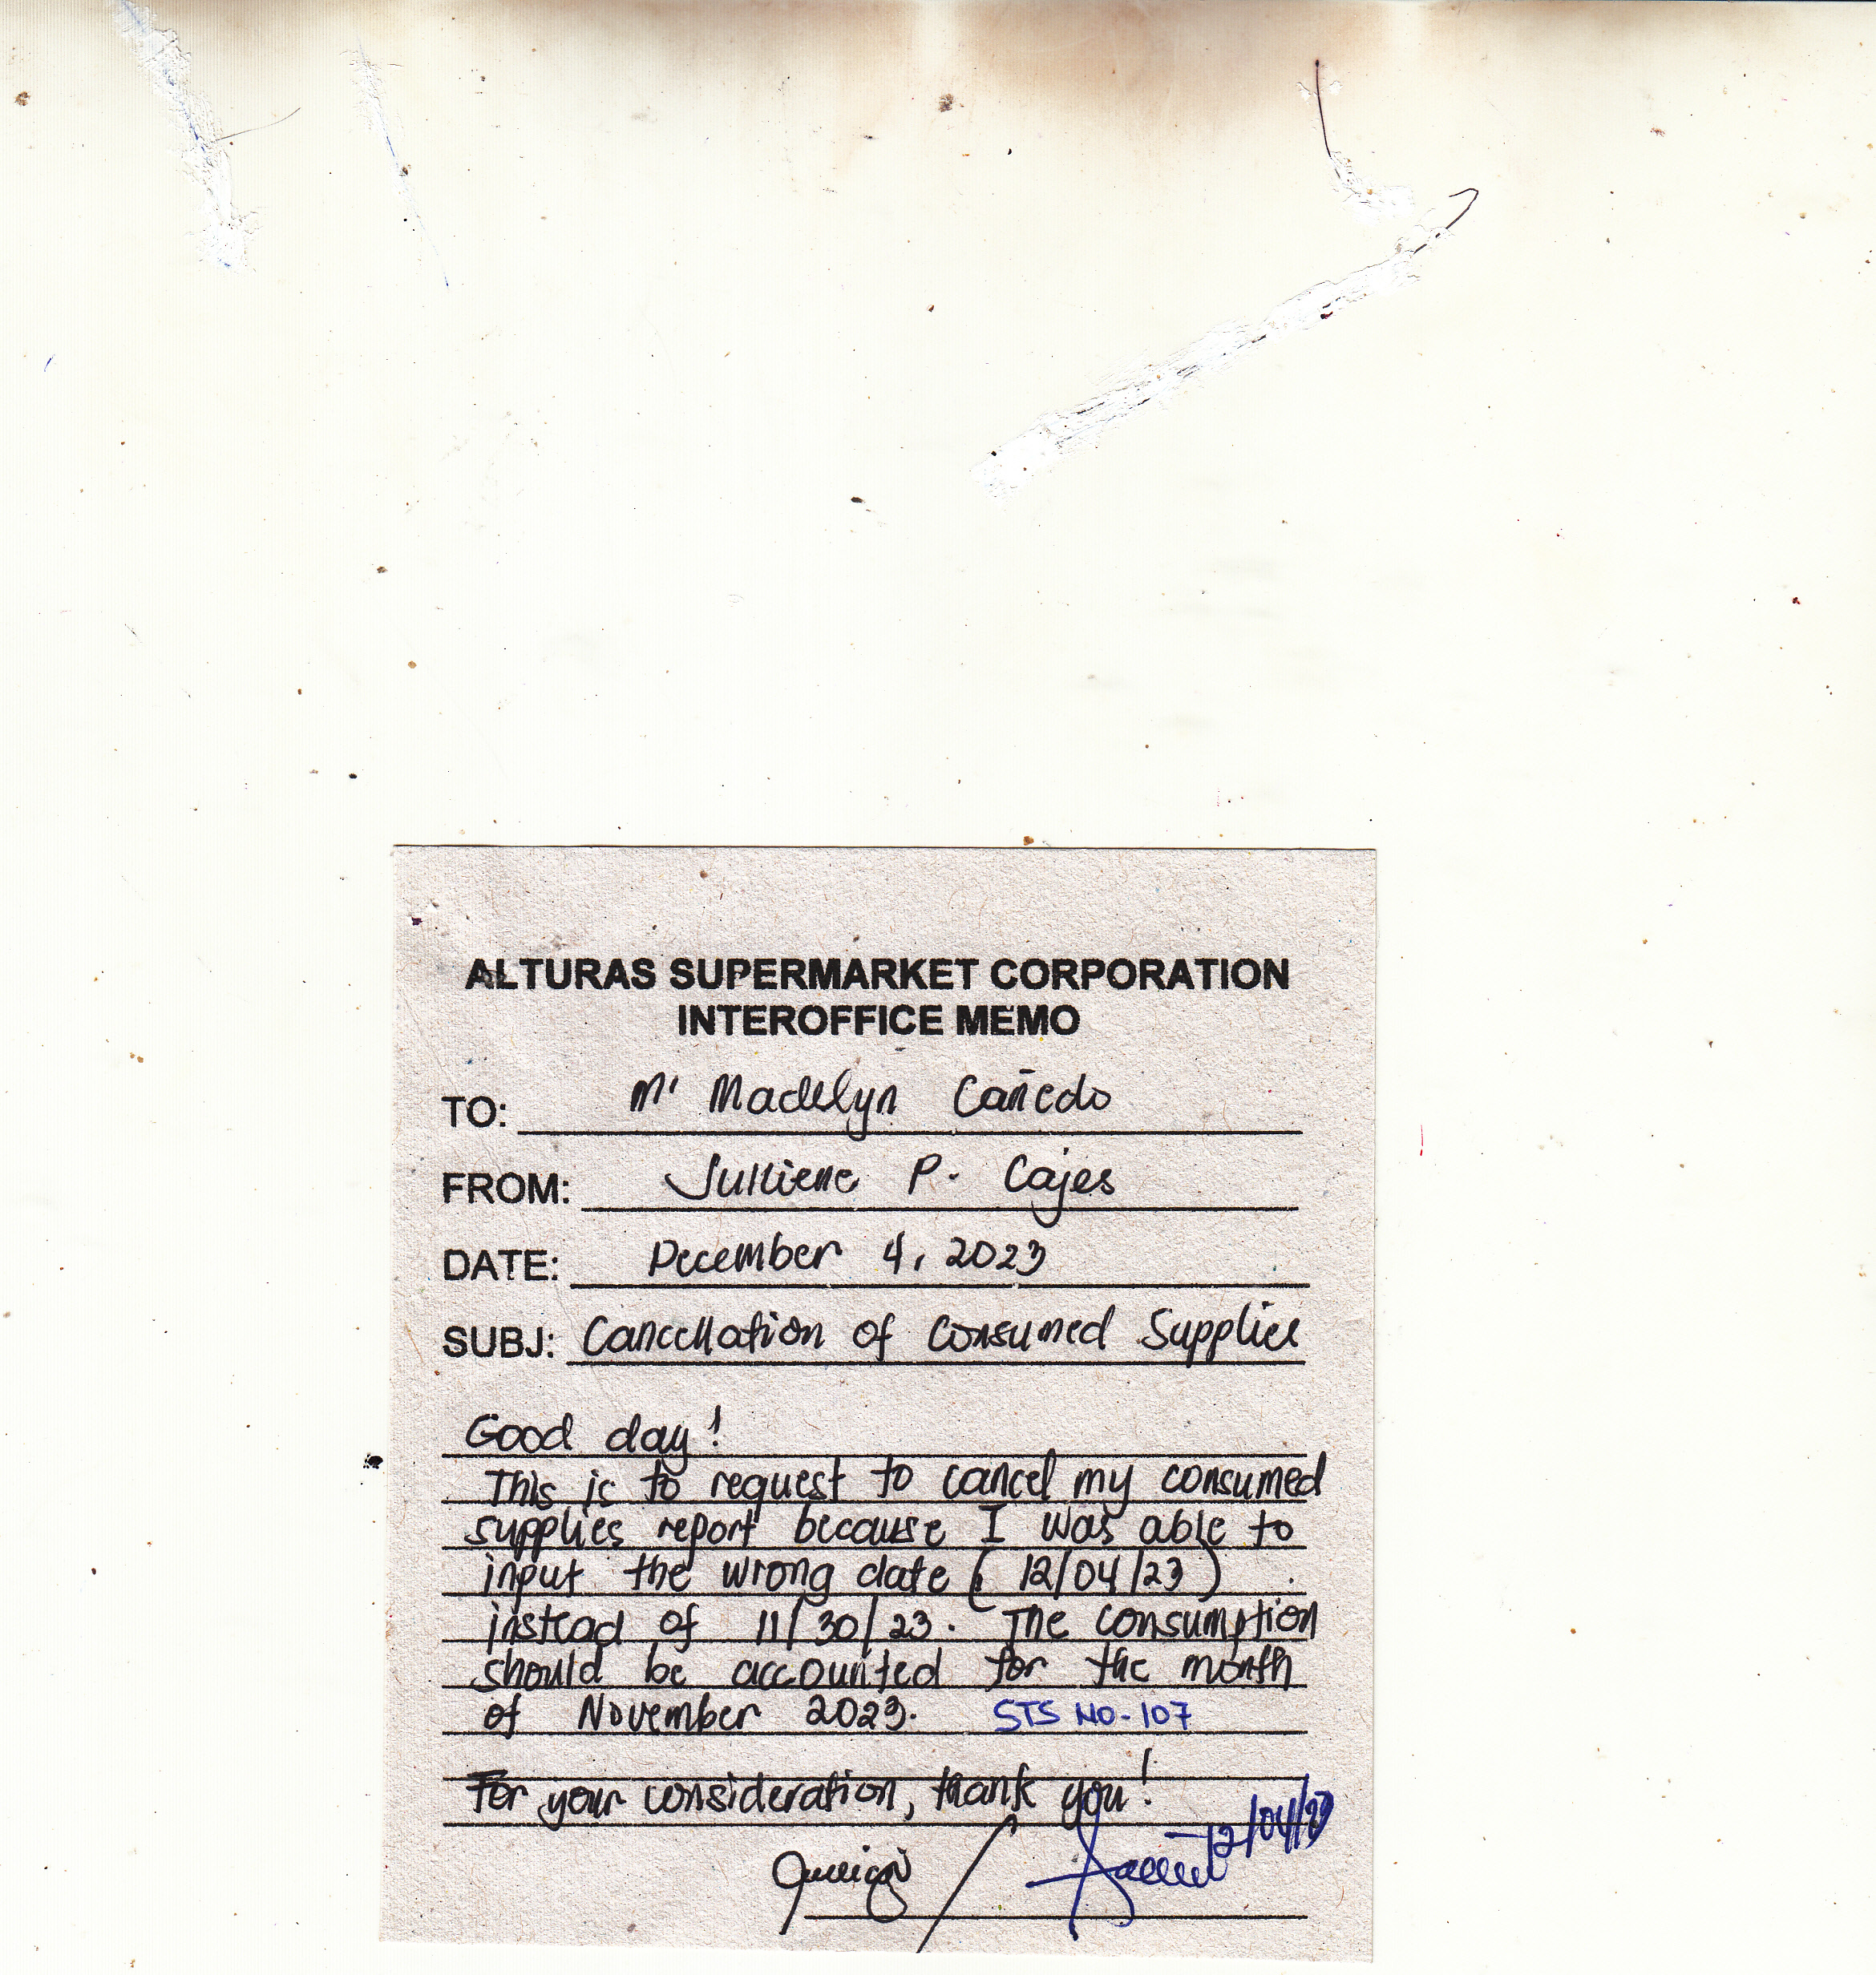 ALTURAS SUPERMARKET CORPORATION
INTEROFFICE MEMO
TO: M' Madelyn Cañedo
FROM: Julliene P. Cajes
DATE: December 4, 2023
SUBJ: Cancellation of Consumed Supplies
Good day!
This is to request to cancel my consumed
supplies report because I was able to
input the wrong date (12/04/23)
instead of 11/30/23. The consumption
should be accounted for the month
of November 2023. STS NO-107
For your consideration, thank you!
12/04/23